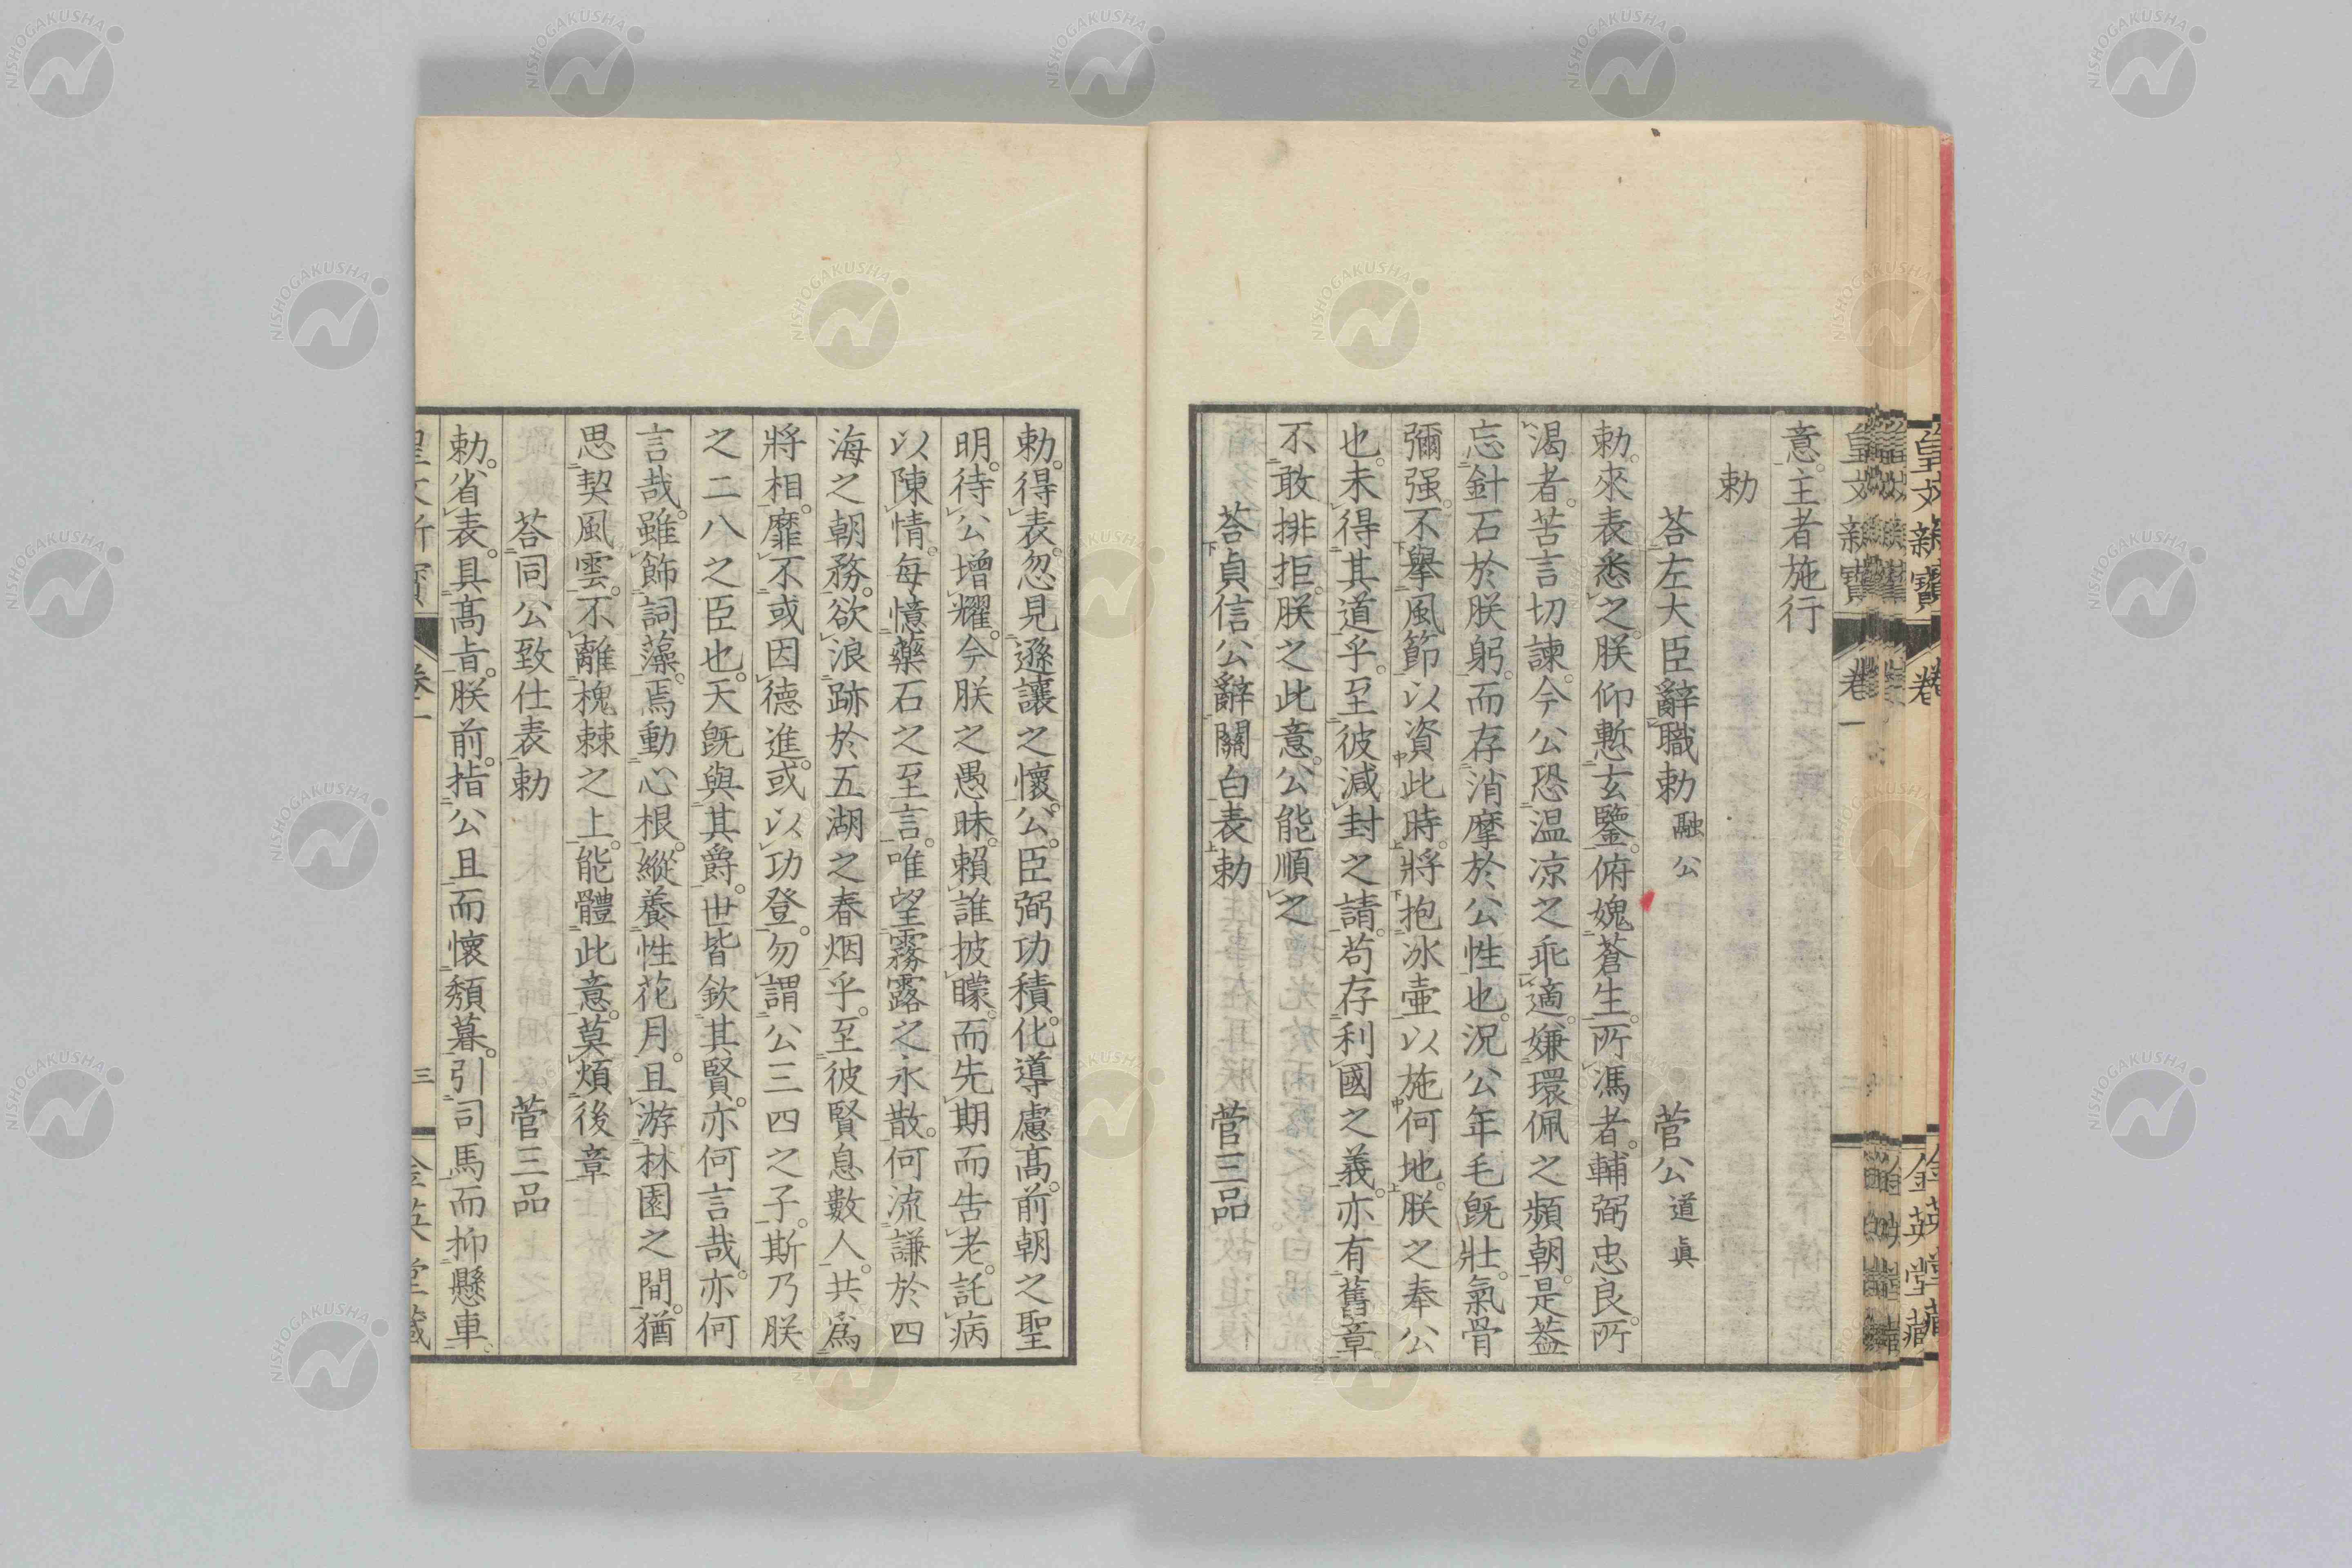 皇文新寶
卷一
意。主者施行
勅
荅左大臣辭職勅 融公 菅公道眞
勅。來表悉之。朕仰慙玄鑒。俯媿蒼生。所馮者。輔弼忠良。所
渴者。苦言切諫。今公恐温凉之乖適。嫌環佩之頻朝。是葢
忘針石於朕躬。而存消摩於公性也。況公年毛既壯。氣骨
彌强。不擧風節以資此時。將抱冰壷以施何地。朕之奉公
也。未得其道乎。至彼減封之請。苟存利國之義。亦有舊章
不敢排拒。朕之此意。公能順之
荅貞信公辭關白表勅 菅三品
勅。得表。忽見遜讓之懷。公。臣弼功積。化導慮髙。前朝之聖
明。待公增耀。今朕之愚昧。賴誰披矇。而先期而告老。託病
以陳情。每憶藥石之至言。唯望霧露之永散。何流謙於四
海之朝務。欲浪跡於五湖之春烟乎。至彼賢息數人。共爲
將相。靡不或因德進。或以功登。勿謂公三四之子。斯乃朕
之二八之臣也。天既與其爵。世皆欽其賢。亦何言哉。亦何
言哉。雖飾詞藻。焉動心根。縱養性花月。且游林園之間。猶
思契風雲。不離槐棘之上。能體此意。莫煩後章
荅同公致仕表勅 菅三品
勅。省表。具髙旨。朕前。指公且而懷頽暮。引司馬而抑懸車。
卷一
三
NISHOGAKUSHA